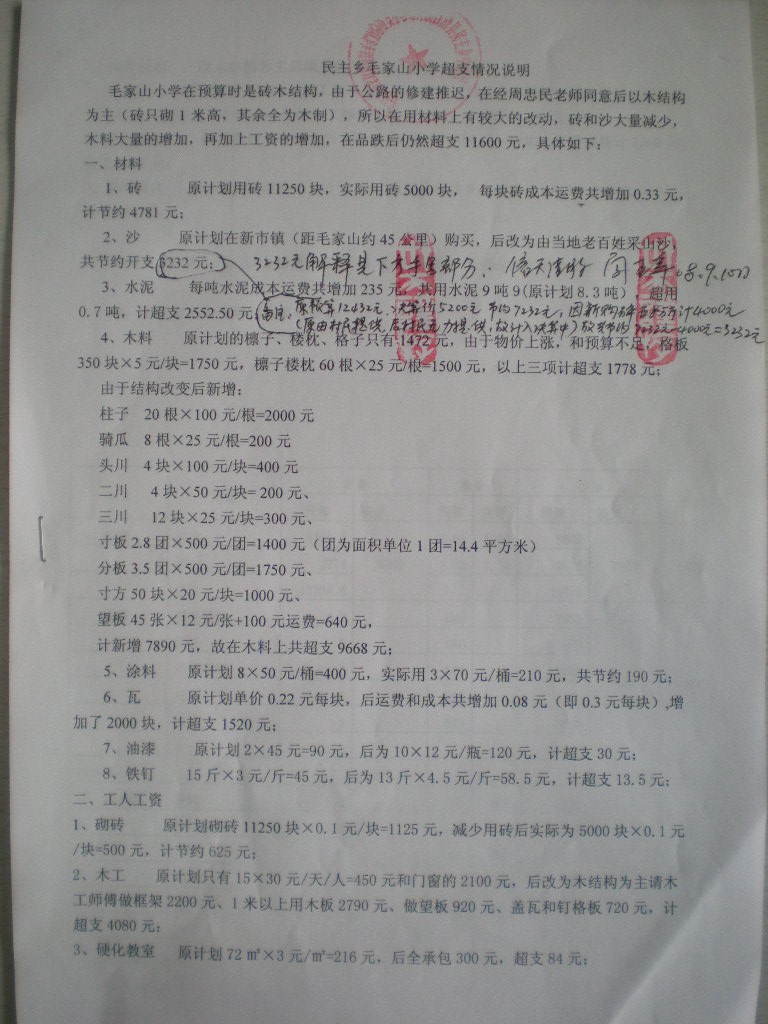 民主乡毛家山小学超支情况说明
毛家山小学在预算时是砖木结构，由于公路的修建推迟，在经周忠民老师同意后以木结构
为主（砖只砌1米高，其余全为木制），所以在用材料上有较大的改动，砖和沙大量减少，
木料大量的增加，再加上工资的增加，在品跌后仍然超支11600元，具体如下：
一、材料
1、砖 原计划用砖11250块，实际用砖5000块， 每块砖成本运费共增加0.33元，
计节约4781元；
2、沙 原计划在新市镇（距毛家山约45公里）购买，后改为由当地老百姓采山沙，
共节约开支3232元； 3232元解释见下
3、水泥 每吨水泥成本运费共增加235元，共用水泥9吨9(原计划8.3吨） 超用
0.7吨，计超支2552.50元 备注：原预算12432元 5200元 节约7232元，因新购碎石 计4000元
（原由村民提供 故计入决算中）故共节约7232元-4000元=3232元
4、木料 原计划的檩子、楼枕、格子只有1472元，由于物价上涨，和预算不足，格板
350块×5元/块=1750元，檩子楼枕60根×25元/根=1500元，以上三项计超支1778元；
由于结构改变后新增：
柱子 20根×100元/根=2000元
骑瓜 8根×25元/根=200元
头川 4块×100元/块=400元
二川 4块×50元/块= 200元、
三川 12块×25元/块=300元、
寸板2.8团×500元/团=1400元（团为面积单位1团=14.4平方米）
分板3.5团×500元/团=1750元、
寸方50块×20元/块=1000元、
望板45张×12元/张+100元运费=640元，
计新增7890元，故在木料上共超支9668元；
5、涂料 原计划8×50元/桶=400元，实际用3×70元/桶=210元，共节约190元；
6、瓦 原计划单价0.22元每块，后运费和成本共增加0.08元（即0.3元每块）,增
加了2000块，计超支1520元；
7、油漆 原计划2×45元=90元，后为10×12元/瓶=120元，计超支30元；
8、铁钉 15斤×3元/斤=45元，后为13斤×4.5元/斤=58.5元，计超支13.5元；
二、工人工资
1、砌砖 原计划砌砖11250块×0.1元/块=1125元，减少用砖后实际为5000块×0.1元
/块=500元，计节约625元；
2、木工 原计划只有15×30元/天/人=450元和门窗的2100元，后改为木结构为主请木
工师傅做框架2200元、1米以上用木板2790元、做望板920元、盖瓦和钉格板720元，计
超支4080元；
3、硬化教室 原计划72㎡×3元/㎡=216元，后全承包300元，超支84元；